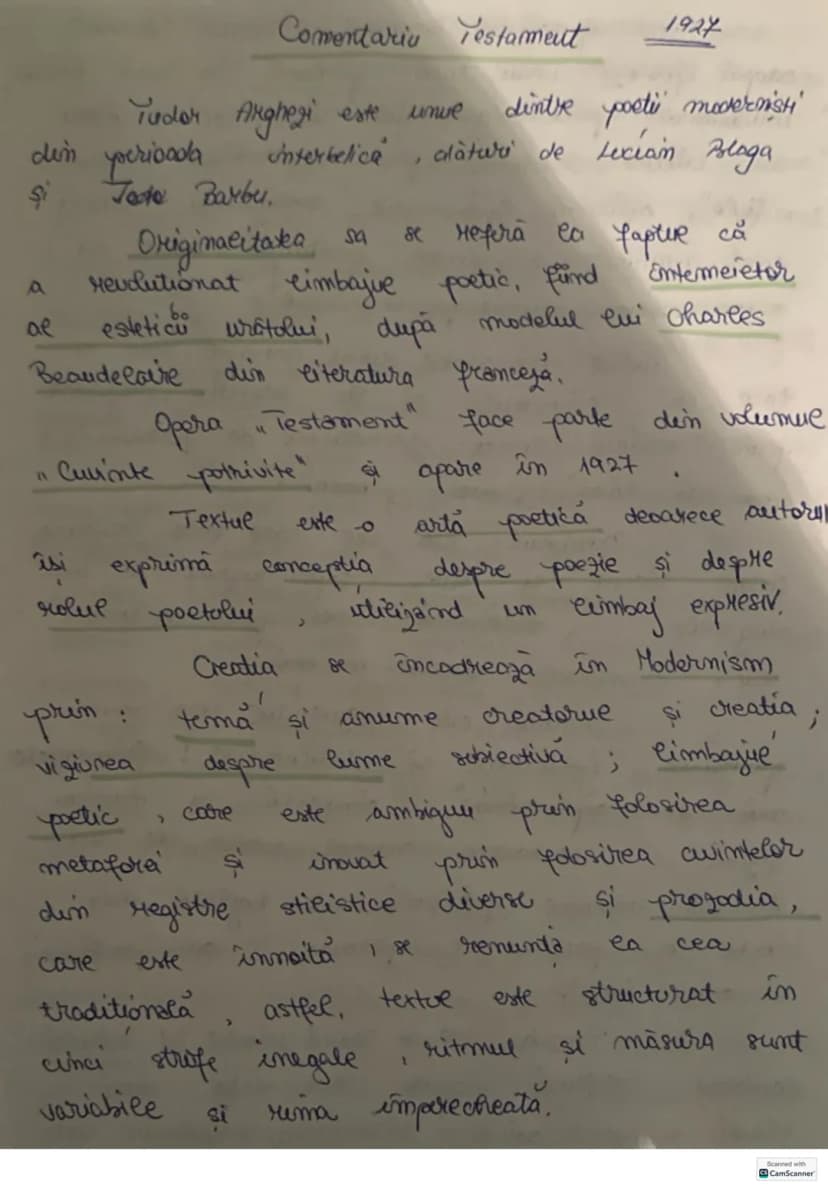 Comentariu Testament 1927
Tudor Arghezi este unul dintre poetii moderniști
din perioada interbelică, alături de Lucian Blaga
și Barbu.
Originalitatea sa se referă la faptul că
a revolutionat limbajul poetic, fiind întemeietor
al esteticii urâtului, după modelul lui Charles
Beaudelaire din literatura franceză.
Opera „Testament" face parte din volumul
„Cuvinte potrivite" și apare în 1927.
Textul este o artă poetică deoarece autorul
isi exprimă conceptia despre poezie și despre
rolul poetului, utilizând un limbaj expresiv.
Creatia se încadrează în Modernism
prin: temă și anume creatorul și creatia;
viziunea despre lume subiectivă; limbajul
poetic, care este ambiguu prin folosirea
metaforei și inovat prin folosirea cuvintelor
din registre stilistice diverse și prozodia,
care este înnoită, se renunță la cea
traditională, astfel, textul este structurat în
cinci strofe inegale, ritmul și măsura sunt
variabile și rima împerecheată.
Scanned with
CS CamScanner